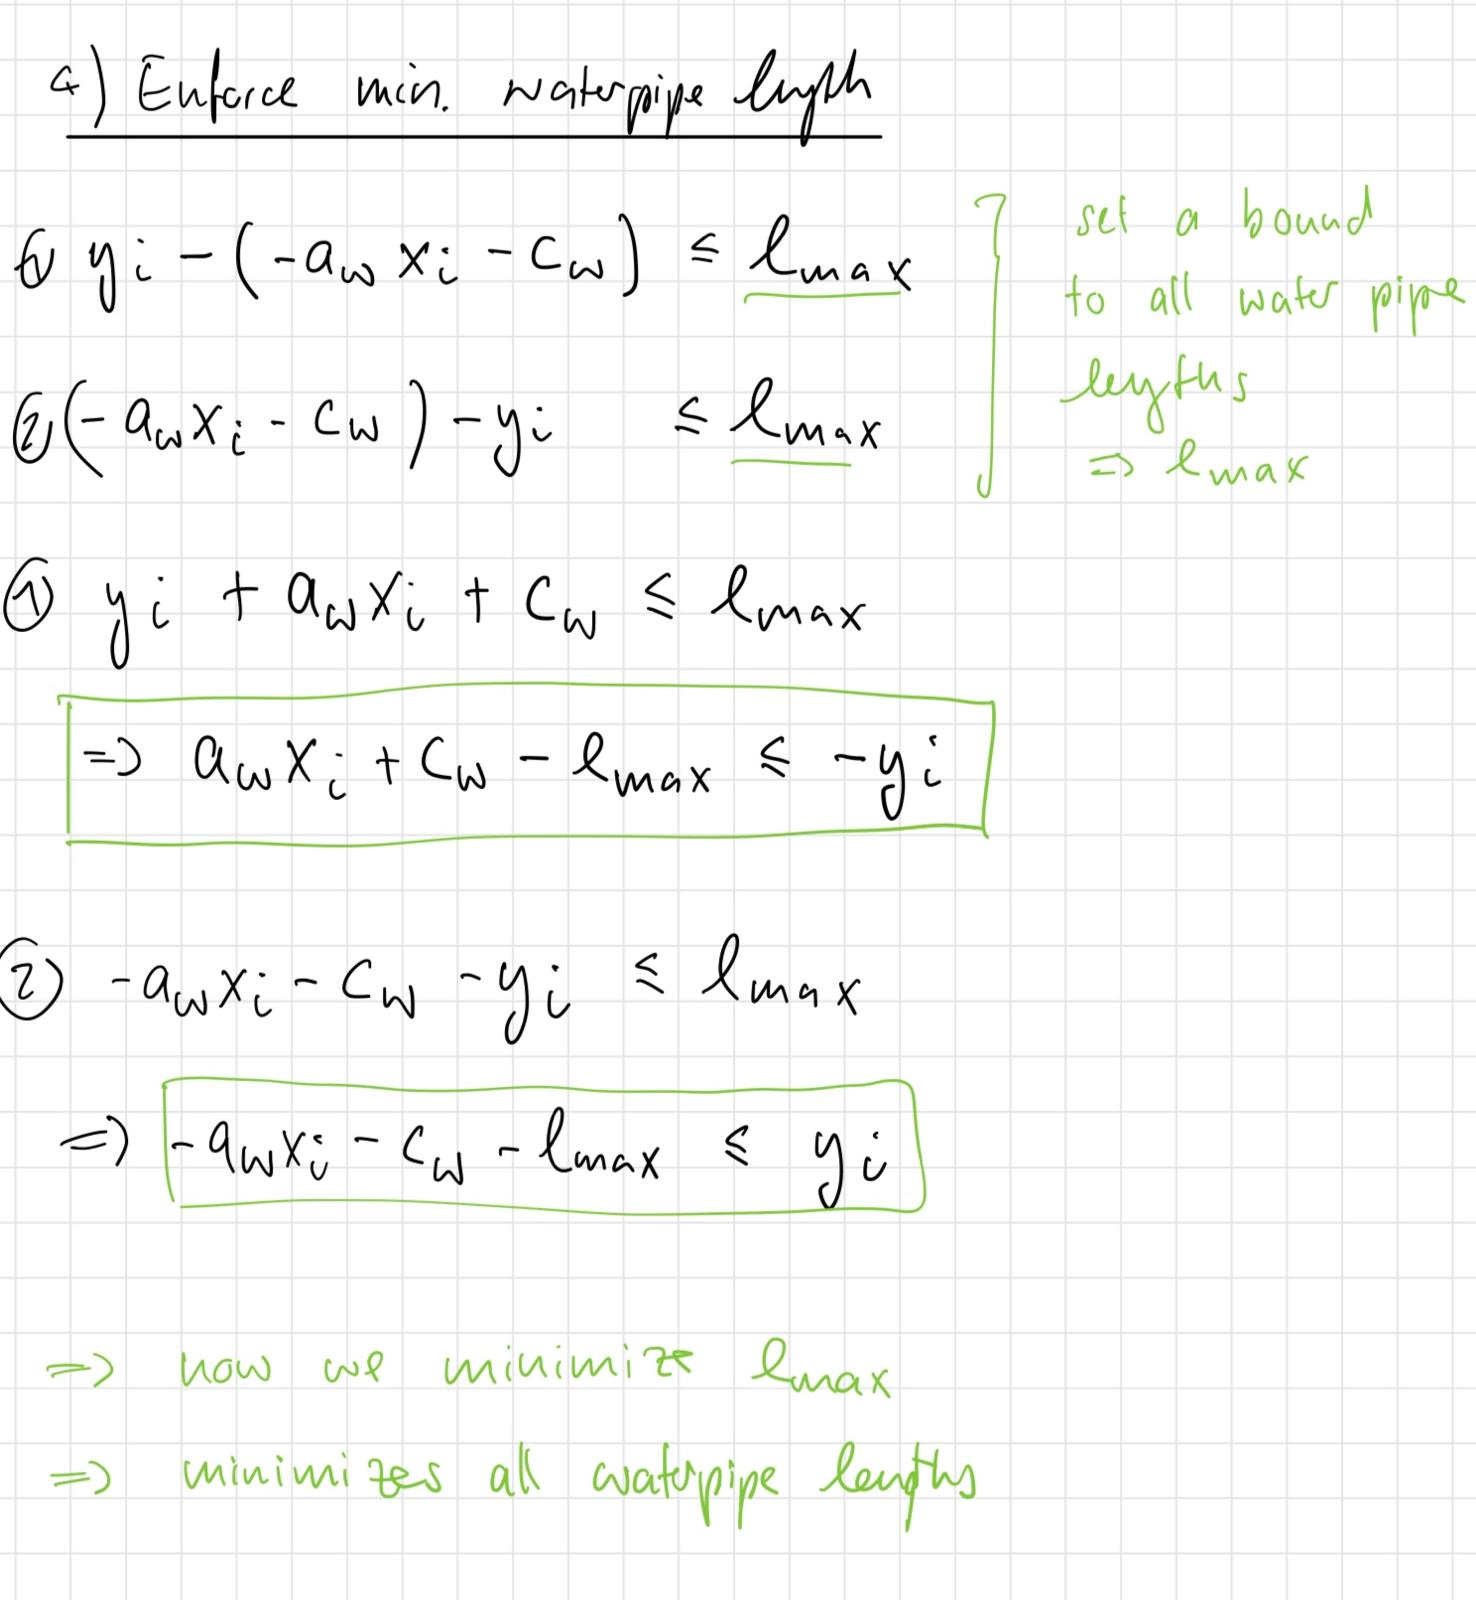 4) Enforce min. waterpipe length
① yi - (-aw xi - cw) ≤ lmax
② (-aw xi - cw) - yi ≤ lmax
set a bound
to all water pipe
lengths
=> lmax
① yi + aw xi + cw ≤ lmax
=> aw xi + cw - lmax ≤ -yi
② -aw xi - cw - yi ≤ lmax
=> -aw xi - cw - lmax ≤ yi
=> now we minimize lmax
=> minimizes all waterpipe lengths